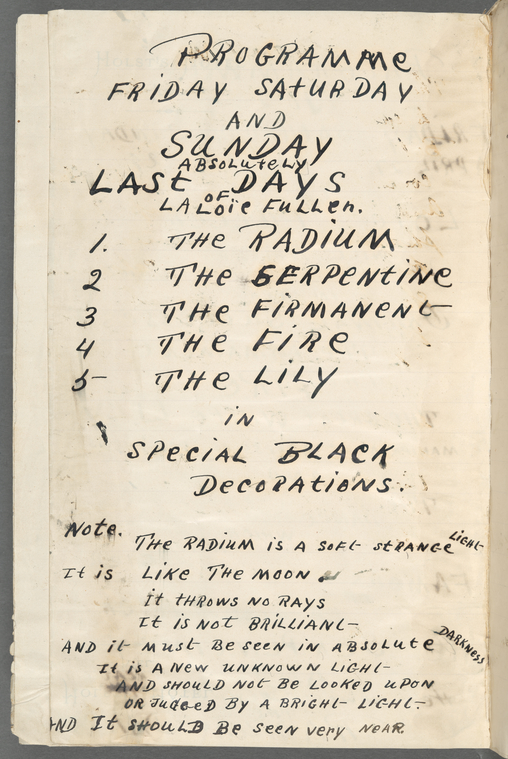 PROGRAMME
FRIDAY SATURDAY
AND
SUNDAY
ABSOLUTELY
LAST DAYS
OF
LA LOÏE FULLER.
1. THE RADIUM
2 THE SERPENTINE
3 THE FIRMANENT
4 THE FIRE
5 THE LILY
IN
SPECIAL BLACK
DECORATIONS.
Note.
THE RADIUM IS A SOFT STRANGE LIGHT
It is LIKE THE MOON.
It THROWS NO RAYS
It is NOT BRILLIANT
AND it MUST BE SEEN IN ABSOLUTE DARKNESS
It is A NEW UNKNOWN LIGHT
AND SHOULD NOT BE LOOKED UPON
OR JUDGED BY A BRIGHT LIGHT
AND It SHOULD BE SEEN VERY NEAR.